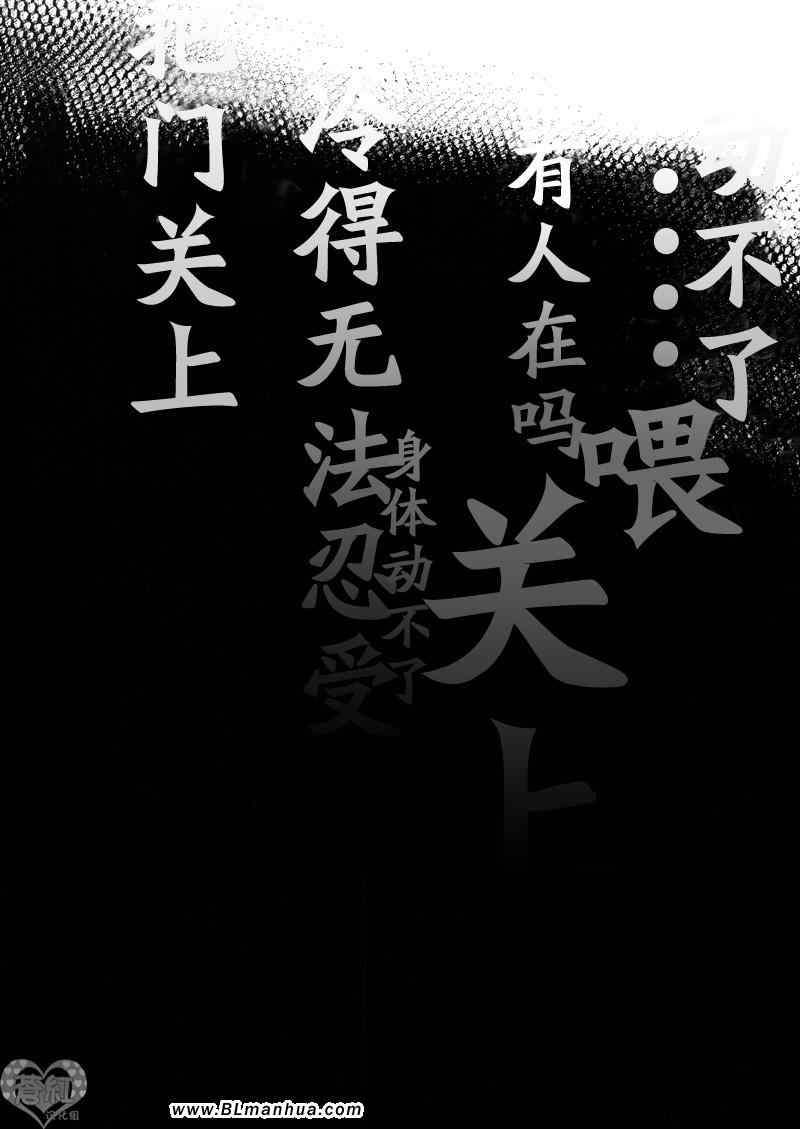 动不了
……
喂
有人在吗
关上
身体动不了
冷得无法忍受
把门关上
蒼紅
汉化组
www.BLmanhua.com